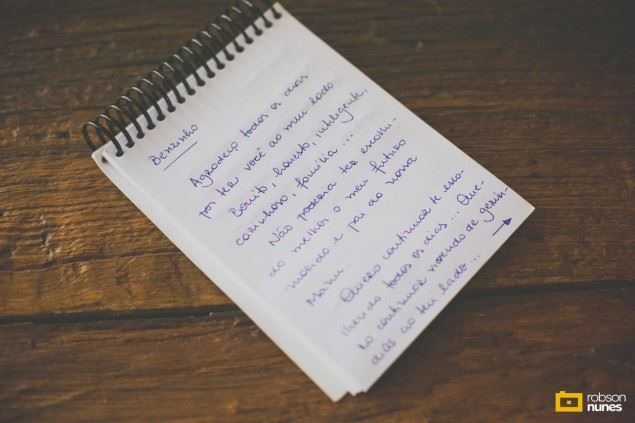 Benzinho
Agradeço todos os dias
por ter você ao meu lado.
Bonito, honesto, inteligente,
carinhoso, família...
Não poderia ter escolhi-
do melhor o meu futuro
marido e pai da nossa
Manu.
Quero continuar te esco-
lhendo todos os dias... Que-
ro continuar vivendo de
dias ao teu lado...
robson
nunes